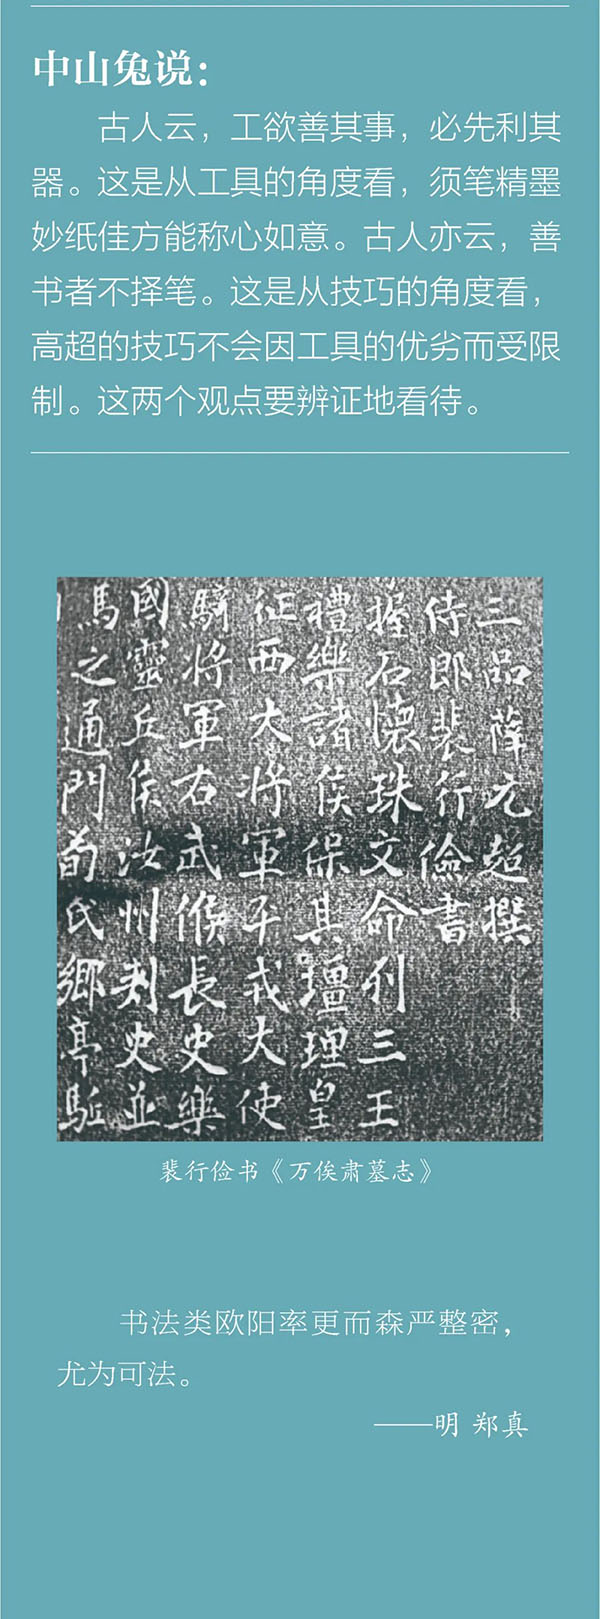 中山兔说：
古人云，工欲善其事，必先利其
器。这是从工具的角度看，须笔精墨
妙纸佳方能称心如意。古人亦云，善
书者不择笔。这是从技巧的角度看，
高超的技巧不会因工具的优劣而受限
制。这两个观点要辨证地看待。
三品薛元超撰
侍郎裴行儉書
握石懷珠文命刊三王
禮樂諸侯保其理皇
征西大將軍平戎大使
騎將軍右武候長史樂
國靈丘侯汝州刺史並
馬之通門荀氏鄉亭駈
裴行俭书《万俟肃墓志》
书法类欧阳率更而森严整密，
尤为可法。
——明 郑真